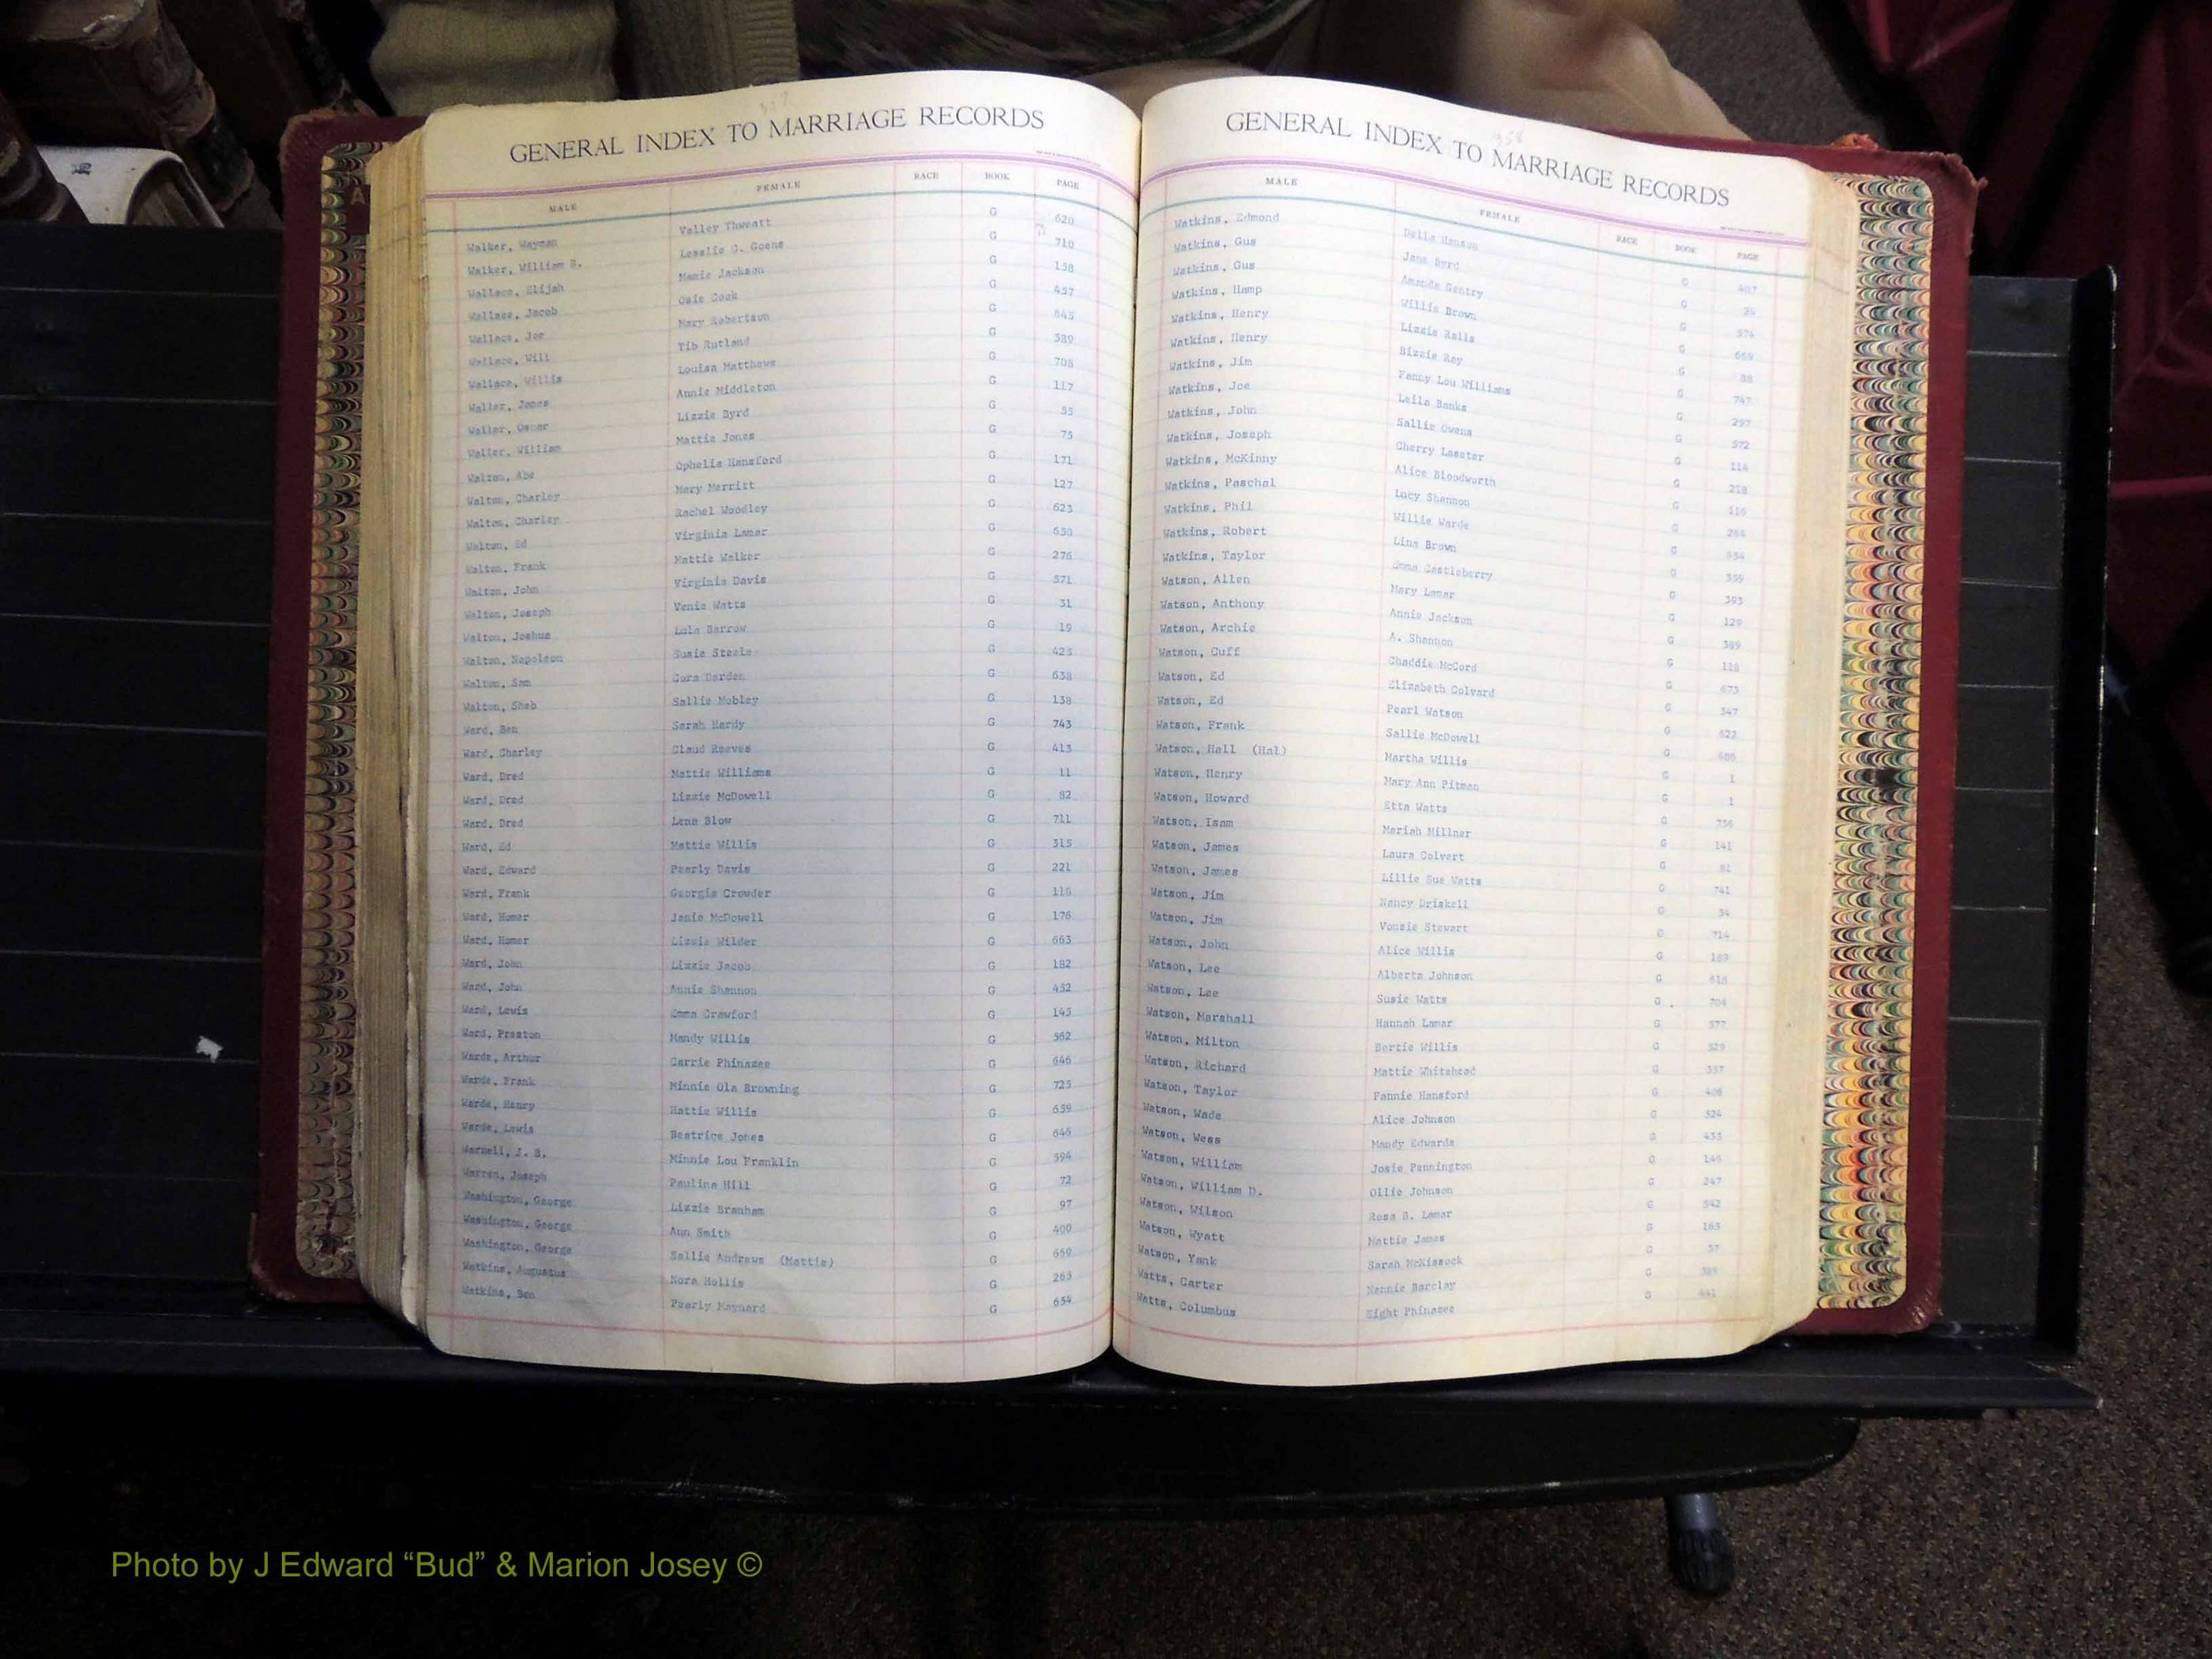 GENERAL INDEX TO MARRIAGE RECORDS
MALE FEMALE RACE BOOK PAGE
Walker, Wayman Valley Thweatt G 620
Walker, William B. Lesslie G. Goens G 710
Wallace, Elijah Mamie Jackson G 158
Wallace, Jacob Osie Cook G 457
Wallace, Joe Mary Robertson G 645
Wallace, Will Tib Rutland G 389
Wallace, Willis Louisa Matthews G 708
Waller, Jones Annie Middleton G 117
Waller, Oscar Lizzie Byrd G 55
Waller, William Mattie Jones G 75
Walton, Abe Ophelia Hansford G 171
Walton, Charley Mary Merritt G 127
Walton, Charley Rachel Woodley G 623
Walton, Ed Virginia Lamar G 650
Walton, Frank Mattie Walker G 276
Walton, John Virginia Davis G 571
Walton, Joseph Venie Watts G 31
Walton, Joshua Lula Barrow G 19
Walton, Napoleon Susie Steele G 425
Walton, Sam Cora Darden G 638
Walton, Sheb Sallie Mobley G 138
Ward, Ben Sarah Hardy G 743
Ward, Charley Claud Reeves G 413
Ward, Dred Mattie Williams G 11
Ward, Dred Lizzie McDowell G 82
Ward, Dred Lena Blow G 711
Ward, Ed Mattie Willis G 315
Ward, Edward Pearly Davis G 221
Ward, Frank Georgia Crowder G 118
Ward, Homer Janie McDowell G 176
Ward, Homer Lizzie Wilder G 663
Ward, John Lizzie Jacob G 182
Ward, John Annie Shannon G 452
Ward, Lewis Emma Crawford G 145
Ward, Preston Mandy Willis G 562
Warde, Arthur Carrie Phinazee G 646
Warde, Frank Minnie Ola Browning G 725
Warde, Henry Hattie Willis G 659
Warde, Lewis Beatrice Jones G 646
Warnell, J. B. Minnie Lou Franklin G 594
Warren, Joseph Pauline Hill G 72
Washington, George Lizzie Branham G 97
Washington, George Ann Smith G 400
Washington, George Sallie Andrews (Mattie) G 650
Watkins, Augustus Nora Hollis G 265
Watkins, Ben Pearly Maynard G 654
358
GENERAL INDEX TO MARRIAGE RECORDS
MALE FEMALE RACE BOOK PAGE
Watkins, Edmond Della Hanson G 407
Watkins, Gus Jane Byrd G 25
Watkins, Gus Amanda Gentry G 574
Watkins, Hamp Willie Brown G 669
Watkins, Henry Lizzie Ralls G 88
Watkins, Henry Bizzie Ray G 747
Watkins, Jim Fanny Lou Williams G 297
Watkins, Joe Leila Banks G 572
Watkins, John Sallie Owens G 114
Watkins, Joseph Cherry Lasster G 218
Watkins, McKinny Alice Bloodworth G 116
Watkins, Paschal Lucy Shannon G 264
Watkins, Phil Willie Warde G 654
Watkins, Robert Lina Brown G 359
Watkins, Taylor Emma Castleberry G 393
Watson, Allen Mary Lamar G 129
Watson, Anthony Annie Jackson G 389
Watson, Archie A. Shannon G 118
Watson, Cuff Chaddie McCord G 673
Watson, Ed Elizabeth Colvard G 547
Watson, Ed Pearl Watson G 622
Watson, Frank Sallie McDowell G 606
Watson, Hall (Hal) Martha Willis G 1
Watson, Henry Mary Ann Pitman G 1
Watson, Howard Etta Watts G 736
Watson, Isam Mariah Millner G 141
Watson, James Laura Colvert G 81
Watson, James Lillie Sue Watts G 741
Watson, Jim Nancy Driskell G 34
Watson, Jim Vonsie Stewart G 714
Watson, John Alice Willis G 189
Watson, Lee Alberta Johnson G 618
Watson, Lee Susie Watts G 704
Watson, Marshall Hannah Lamar G 577
Watson, Milton Bertie Willis G 529
Watson, Richard Mattie Whitehead G 357
Watson, Taylor Fannie Hansford G 406
Watson, Wade Alice Johnson G 524
Watson, Wess Mandy Edwards G 435
Watson, William Josie Pennington G 146
Watson, William D. Ollie Johnson G 247
Watson, Wilson Rosa B. Lamar G 542
Watson, Wyatt Mattie James G 165
Watson, Yank Sarah McKissock G 37
Watts, Carter Nannie Barclay G 385
Watts, Columbus Eight Phinazee G 441
Photo by J Edward “Bud” & Marion Josey ©